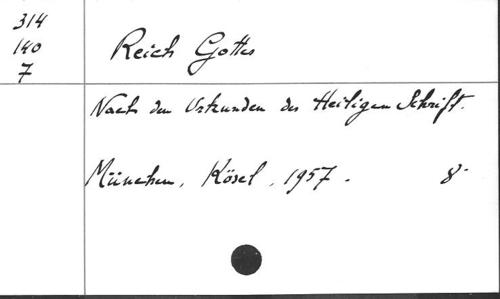 314
140
7
Reich Gottes
Nach den Urkunden der Heiligen Schrift.
München, Kösel, 1957. 8°